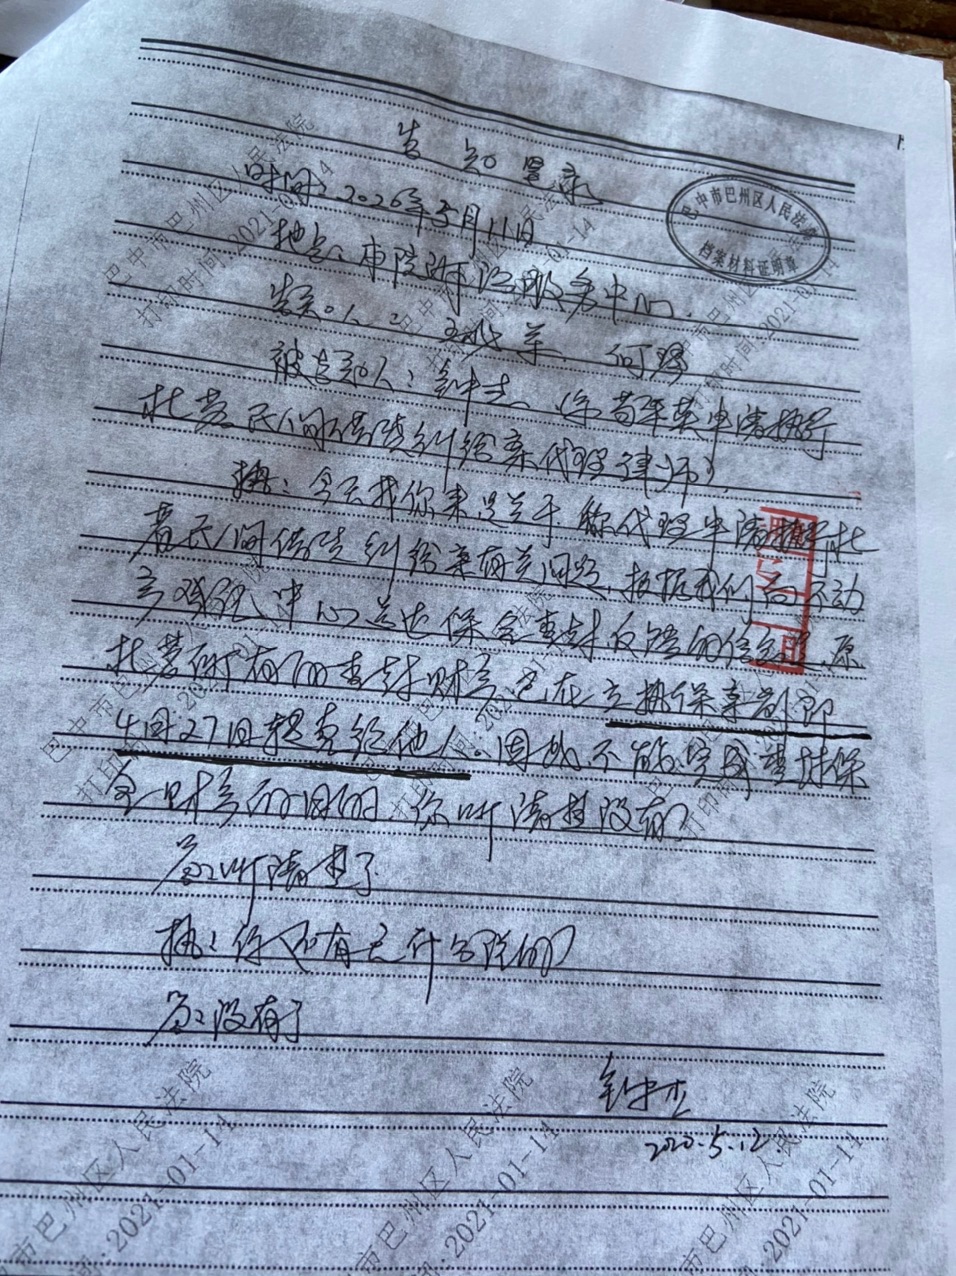 告知笔录
时间：2020年5月11日
地点：本院诉讼服务中心.
告知人： 何
被告知人：
民间借贷纠纷案代理律师）
执：今天找你来是关于你代理申请执行杜
民间借贷纠纷案有关问题，根据我们向不动
产登记中心送达保全查封反馈的信息，原
杜 所有的查封财产，已在立执保案前即
4月27日提走给他人。因此不能完成查封保
全财产的目的，你听清楚没有？
答：听清楚了
执：你还有无什么说的？
答：没有了
2020.5.12.
巴中市巴州区人民法院
档案材料证明章
巴中市巴州区人民法院
打印时间：2021-01-14